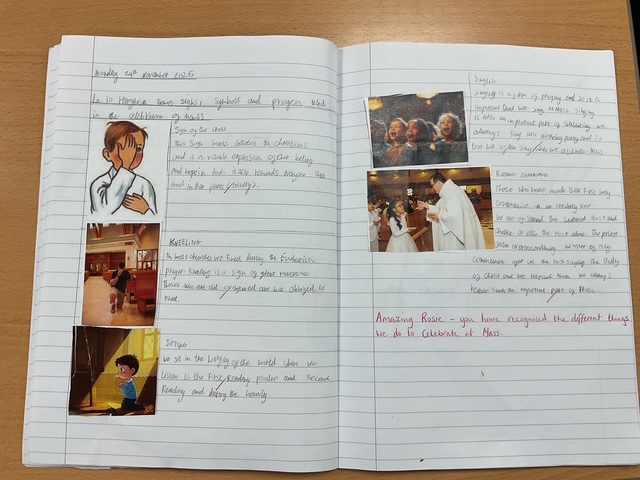 Monday 24th November 2025
L.O. to recognise some signs, symbols and prayers used
in the celebration of Mass.
Sign of the cross
This Sign marks Catholics as christians
and is a visible of our belief
and hope in God. it also reminds everyone that
God is three
KNEELING
In most churches we Kneel during the Eucharistic
prayer. Kneeling is a sign of great reverence
Those who are old or injured are not obliged to
Kneel.
Sitting
We sit in the Liturgy of the world when we
listen to the First Reading psalm and second
Reading and during the homily.
Singing
Singing is a form of praying and so it is
important that we sing at Mass. Singing
is also an important part of celebrating. we
always sing at a birthday party and so
too we often sing when we celebrate Mass.
Those who have made their First holy
Communion
we are offered the sacred Host and
chalice
extraordinary minister of holy
Communion The Body
of Christ and we
an important part of Mass.
Amazing Rosie - you have recognised the different things
we do to celebrate at Mass.